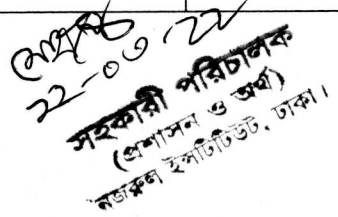 22-03-22
সহকারী পরিচালক
(প্রশাসন ও অর্থ)
নজরুল ইন্সটিটিউট, ঢাকা।